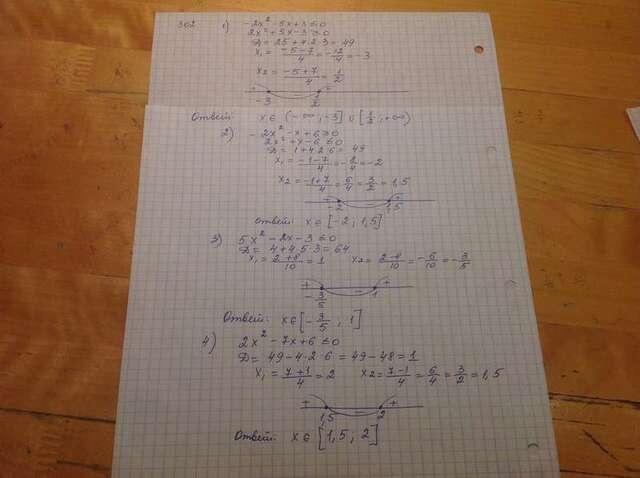 302 1) -2x² - 5x + 3 ≤ 0
2x² + 5x - 3 ≥ 0
D = 25 + 4·2·3 = 49
x₁ = (-5-7)/4 = -12/4 = -3
x₂ = (-5+7)/4 = 1/2
+ - +
-3 1/2
Ответ: x ∈ (-∞; -3] ∪ [1/2; +∞)
2) -2x² - x + 6 ≥ 0
2x² + x - 6 ≤ 0
D = 1 + 4·2·6 = 49
x₁ = (-1-7)/4 = -8/4 = -2
x₂ = (-1+7)/4 = 6/4 = 3/2 = 1,5
+ - +
-2 1,5
Ответ: x ∈ [-2; 1,5]
3) 5x² - 2x - 3 ≤ 0
D = 4 + 4·5·3 = 64
x₁ = (2+8)/10 = 1 x₂ = (2-8)/10 = -6/10 = -3/5
+ - +
-3/5 1
Ответ: x ∈ [-3/5; 1]
4) 2x² - 7x + 6 ≤ 0
D = 49 - 4·2·6 = 49 - 48 = 1
x₁ = (7+1)/4 = 2 x₂ = (7-1)/4 = 6/4 = 3/2 = 1,5
+ - +
1,5 2
Ответ: x ∈ [1,5; 2]